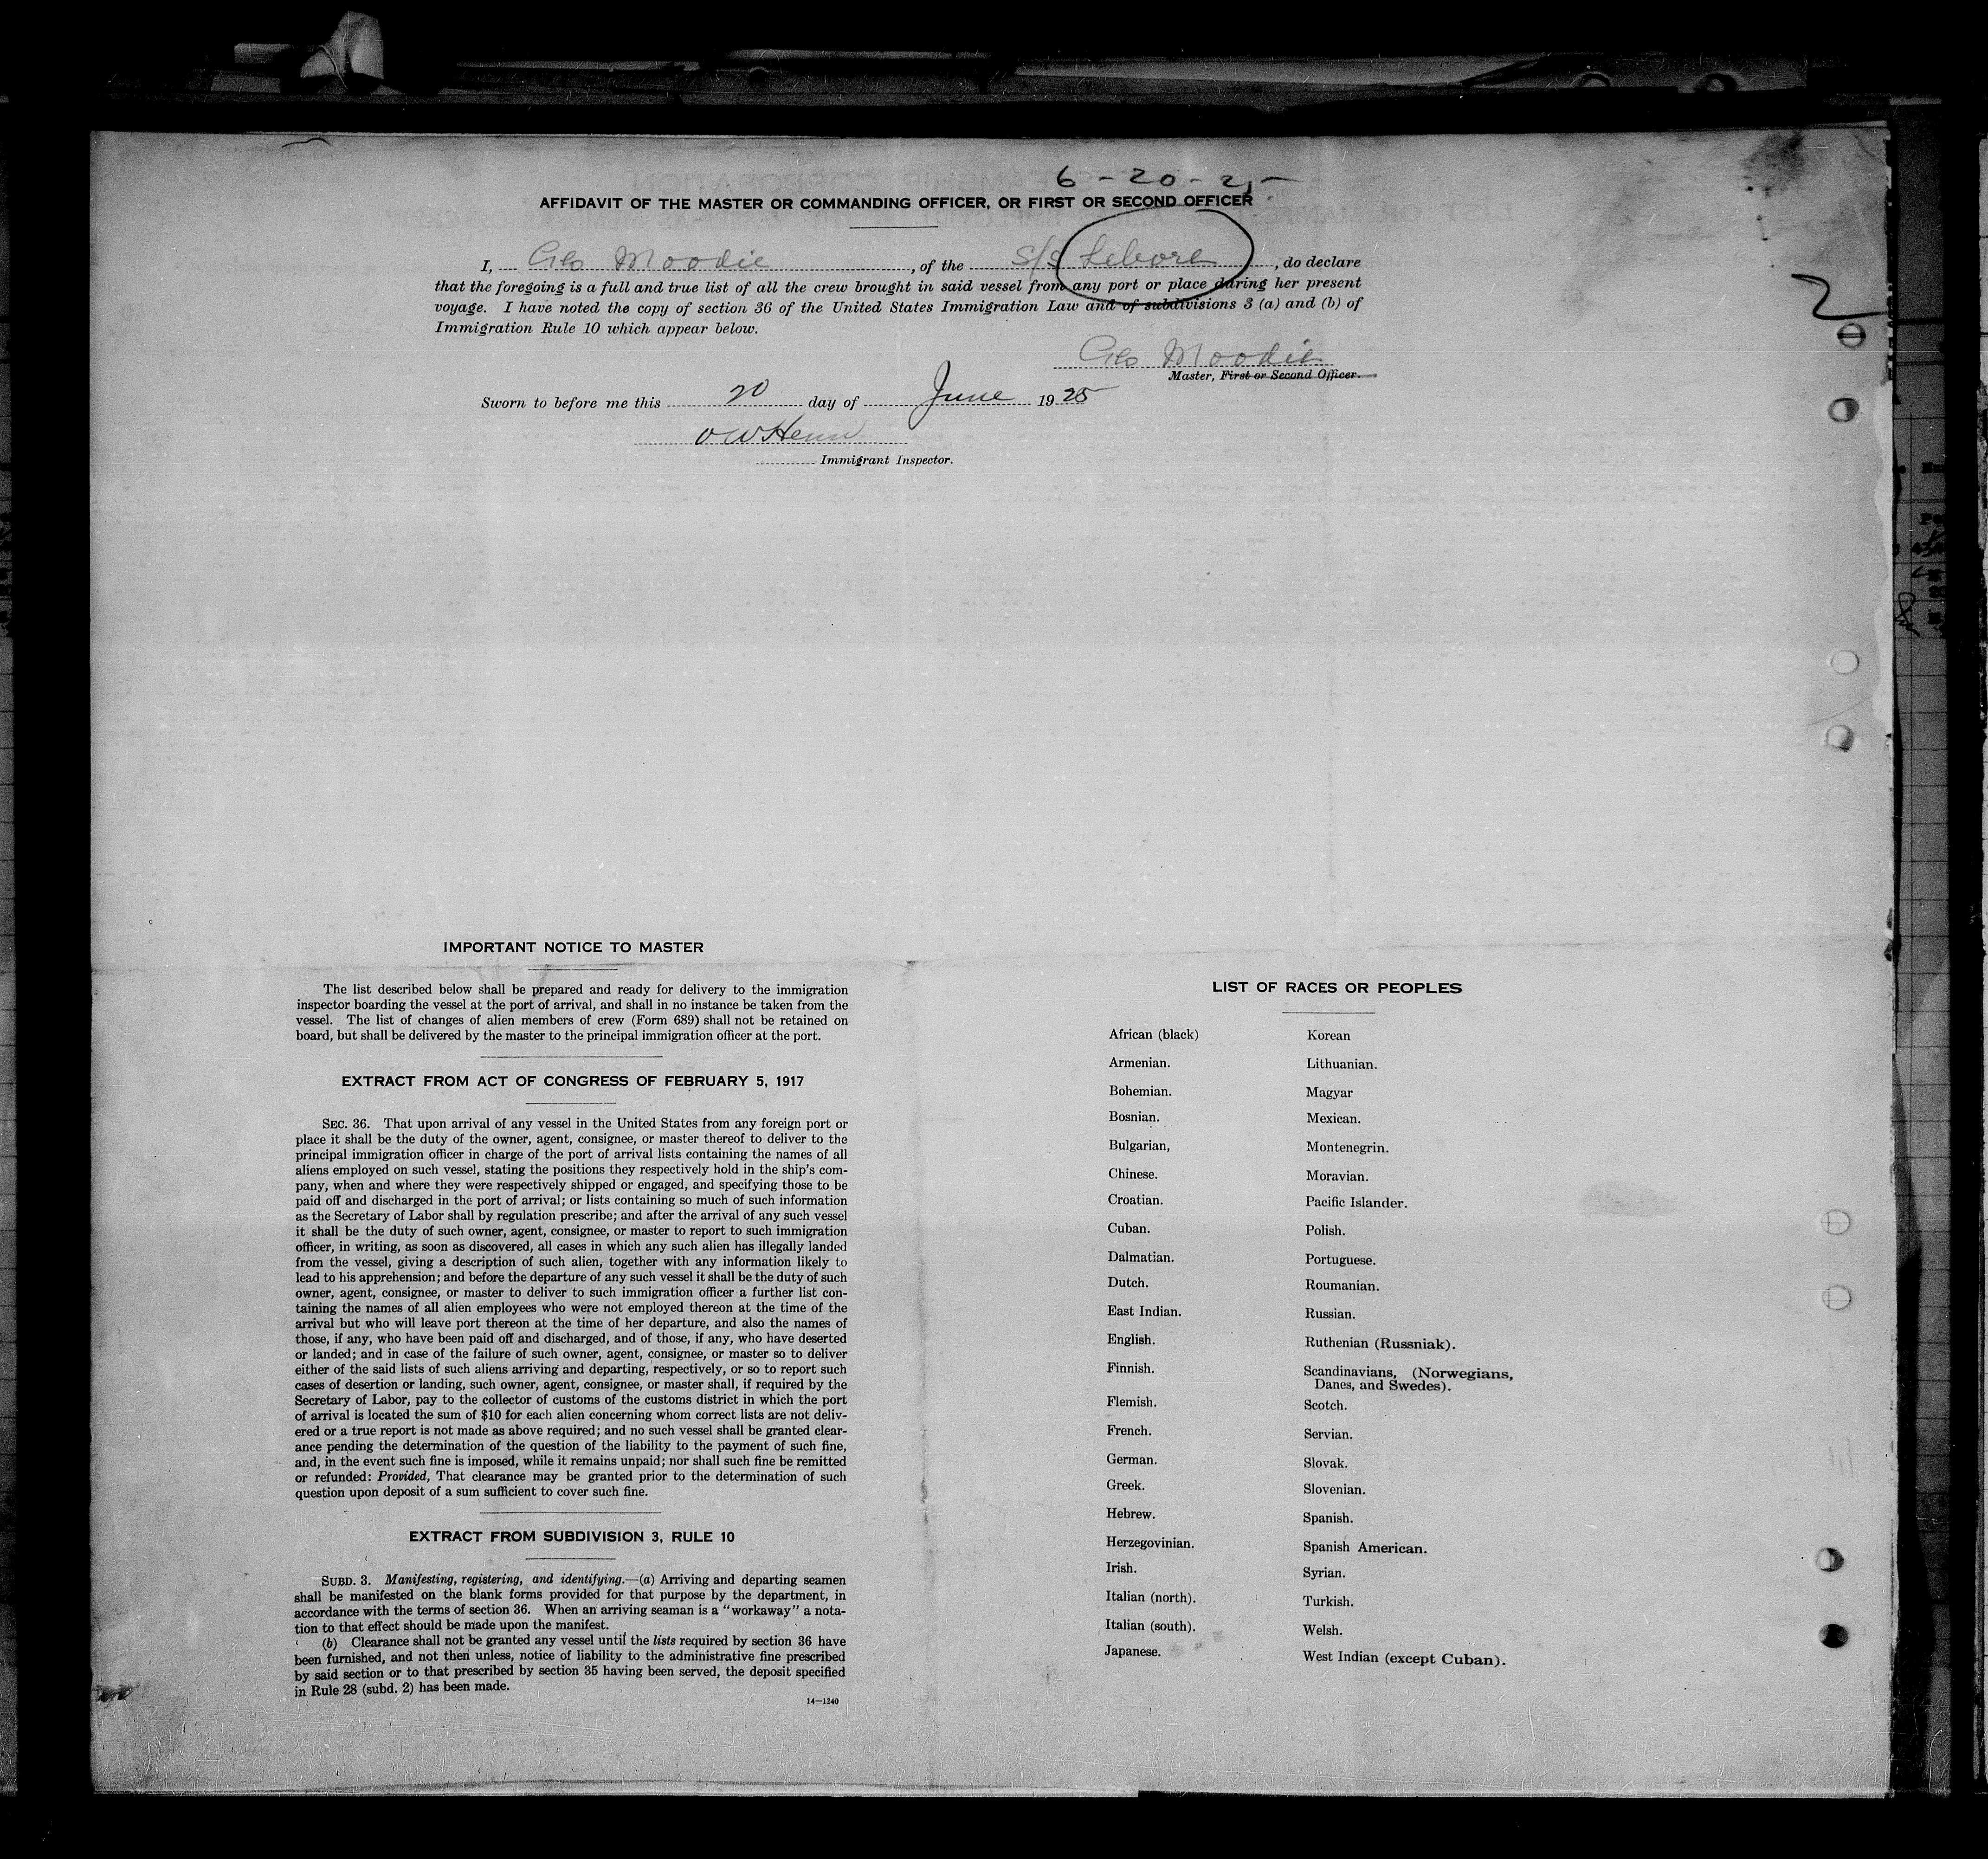 6-20-25
AFFIDAVIT OF THE MASTER OR COMMANDING OFFICER, OR FIRST OR SECOND OFFICER
I, Geo Moodie, of the S/S Lebore, do declare
that the foregoing is a full and true list of all the crew brought in said vessel from any port or place during her present
voyage. I have noted the copy of section 36 of the United States Immigration Law and of subdivisions 3 (a) and (b) of
Immigration Rule 10 which appear below.
2
Geo Moodie
Master, First or Second Officer.
Sworn to before me this 20 day of June 1925
Immigrant Inspector.
IMPORTANT NOTICE TO MASTER
The list described below shall be prepared and ready for delivery to the immigration
inspector boarding the vessel at the port of arrival, and shall in no instance be taken from the
vessel. The list of changes of alien members of crew (Form 689) shall not be retained on
board, but shall be delivered by the master to the principal immigration officer at the port.
EXTRACT FROM ACT OF CONGRESS OF FEBRUARY 5, 1917
SEC. 36. That upon arrival of any vessel in the United States from any foreign port or
place it shall be the duty of the owner, agent, consignee, or master thereof to deliver to the
principal immigration officer in charge of the port of arrival lists containing the names of all
aliens employed on such vessel, stating the positions they respectively hold in the ship's com-
pany, when and where they were respectively shipped or engaged, and specifying those to be
paid off and discharged in the port of arrival; or lists containing so much of such information
as the Secretary of Labor shall by regulation prescribe; and after the arrival of any such vessel
it shall be the duty of such owner, agent, consignee, or master to report to such immigration
officer, in writing, as soon as discovered, all cases in which any such alien has illegally landed
from the vessel, giving a description of such alien, together with any information likely to
lead to his apprehension; and before the departure of any such vessel it shall be the duty of such
owner, agent, consignee, or master to deliver to such immigration officer a further list con-
taining the names of all alien employees who were not employed thereon at the time of the
arrival but who will leave port thereon at the time of her departure, and also the names of
those, if any, who have been paid off and discharged, and of those, if any, who have deserted
or landed; and in case of the failure of such owner, agent, consignee, or master so to deliver
either of the said lists of such aliens arriving and departing, respectively, or so to report such
cases of desertion or landing, such owner, agent, consignee, or master shall, if required by the
Secretary of Labor, pay to the collector of customs of the customs district in which the port
of arrival is located the sum of $10 for each alien concerning whom correct lists are not deliv-
ered or a true report is not made as above required; and no such vessel shall be granted clear-
ance pending the determination of the question of the liability to the payment of such fine,
and, in the event such fine is imposed, while it remains unpaid; nor shall such fine be remitted
or refunded: Provided, That clearance may be granted prior to the determination of such
question upon deposit of a sum sufficient to cover such fine.
EXTRACT FROM SUBDIVISION 3, RULE 10
SUBD. 3. Manifesting, registering, and identifying.—(a) Arriving and departing seamen
shall be manifested on the blank forms provided for that purpose by the department, in
accordance with the terms of section 36. When an arriving seaman is a "workaway" a nota-
tion to that effect should be made upon the manifest.
(b) Clearance shall not be granted any vessel until the lists required by section 36 have
been furnished, and not then unless, notice of liability to the administrative fine prescribed
by said section or to that prescribed by section 35 having been served, the deposit specified
in Rule 28 (subd. 2) has been made.
14—1240
LIST OF RACES OR PEOPLES
African (black)
Armenian.
Bohemian.
Bosnian.
Bulgarian,
Chinese.
Croatian.
Cuban.
Dalmatian.
Dutch.
East Indian.
English.
Finnish.
Flemish.
French.
German.
Greek.
Hebrew.
Herzegovinian.
Irish.
Italian (north).
Italian (south).
Japanese.
Korean
Lithuanian.
Magyar
Mexican.
Montenegrin.
Moravian.
Pacific Islander.
Polish.
Portuguese.
Roumanian.
Russian.
Ruthenian (Russniak).
Scandinavians, (Norwegians,
Danes, and Swedes).
Scotch.
Servian.
Slovak.
Slovenian.
Spanish.
Spanish American.
Syrian.
Turkish.
Welsh.
West Indian (except Cuban).